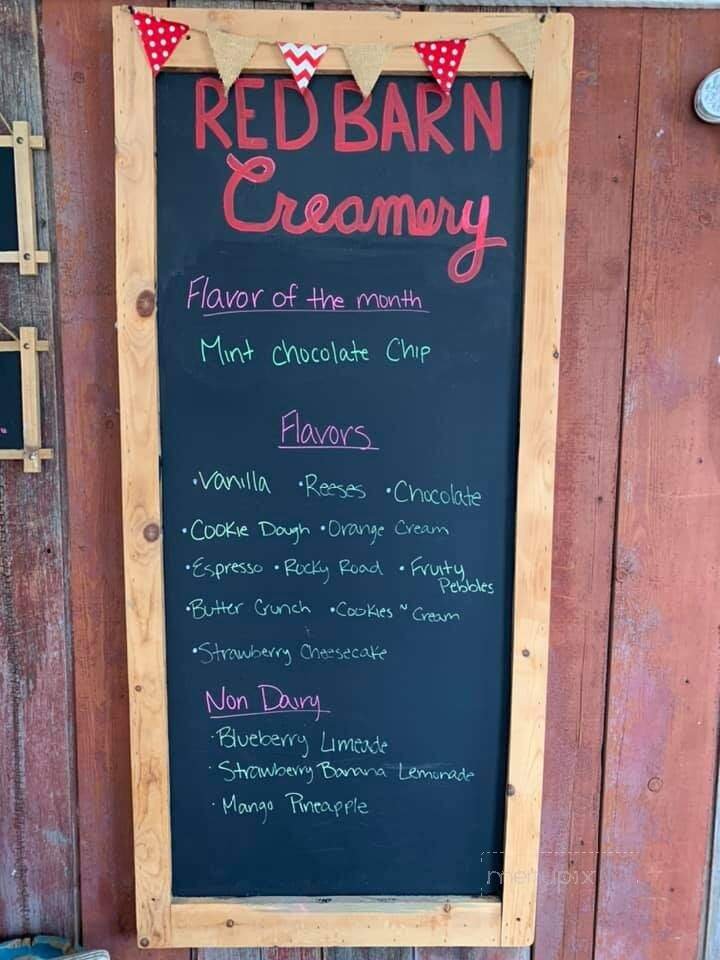 RED BARN
Creamery
Flavor of the month
Mint chocolate Chip
Flavors
·Vanilla ·Reeses ·Chocolate
·Cookie Dough ·Orange Cream
·Espresso ·Rocky Road ·Fruity
Pebbles
·Butter Crunch ·Cookies ~ Cream
·Strawberry Cheesecake
Non Dairy
·Blueberry Limeade
·Strawberry Banana Lemonade
·Mango Pineapple
menupix